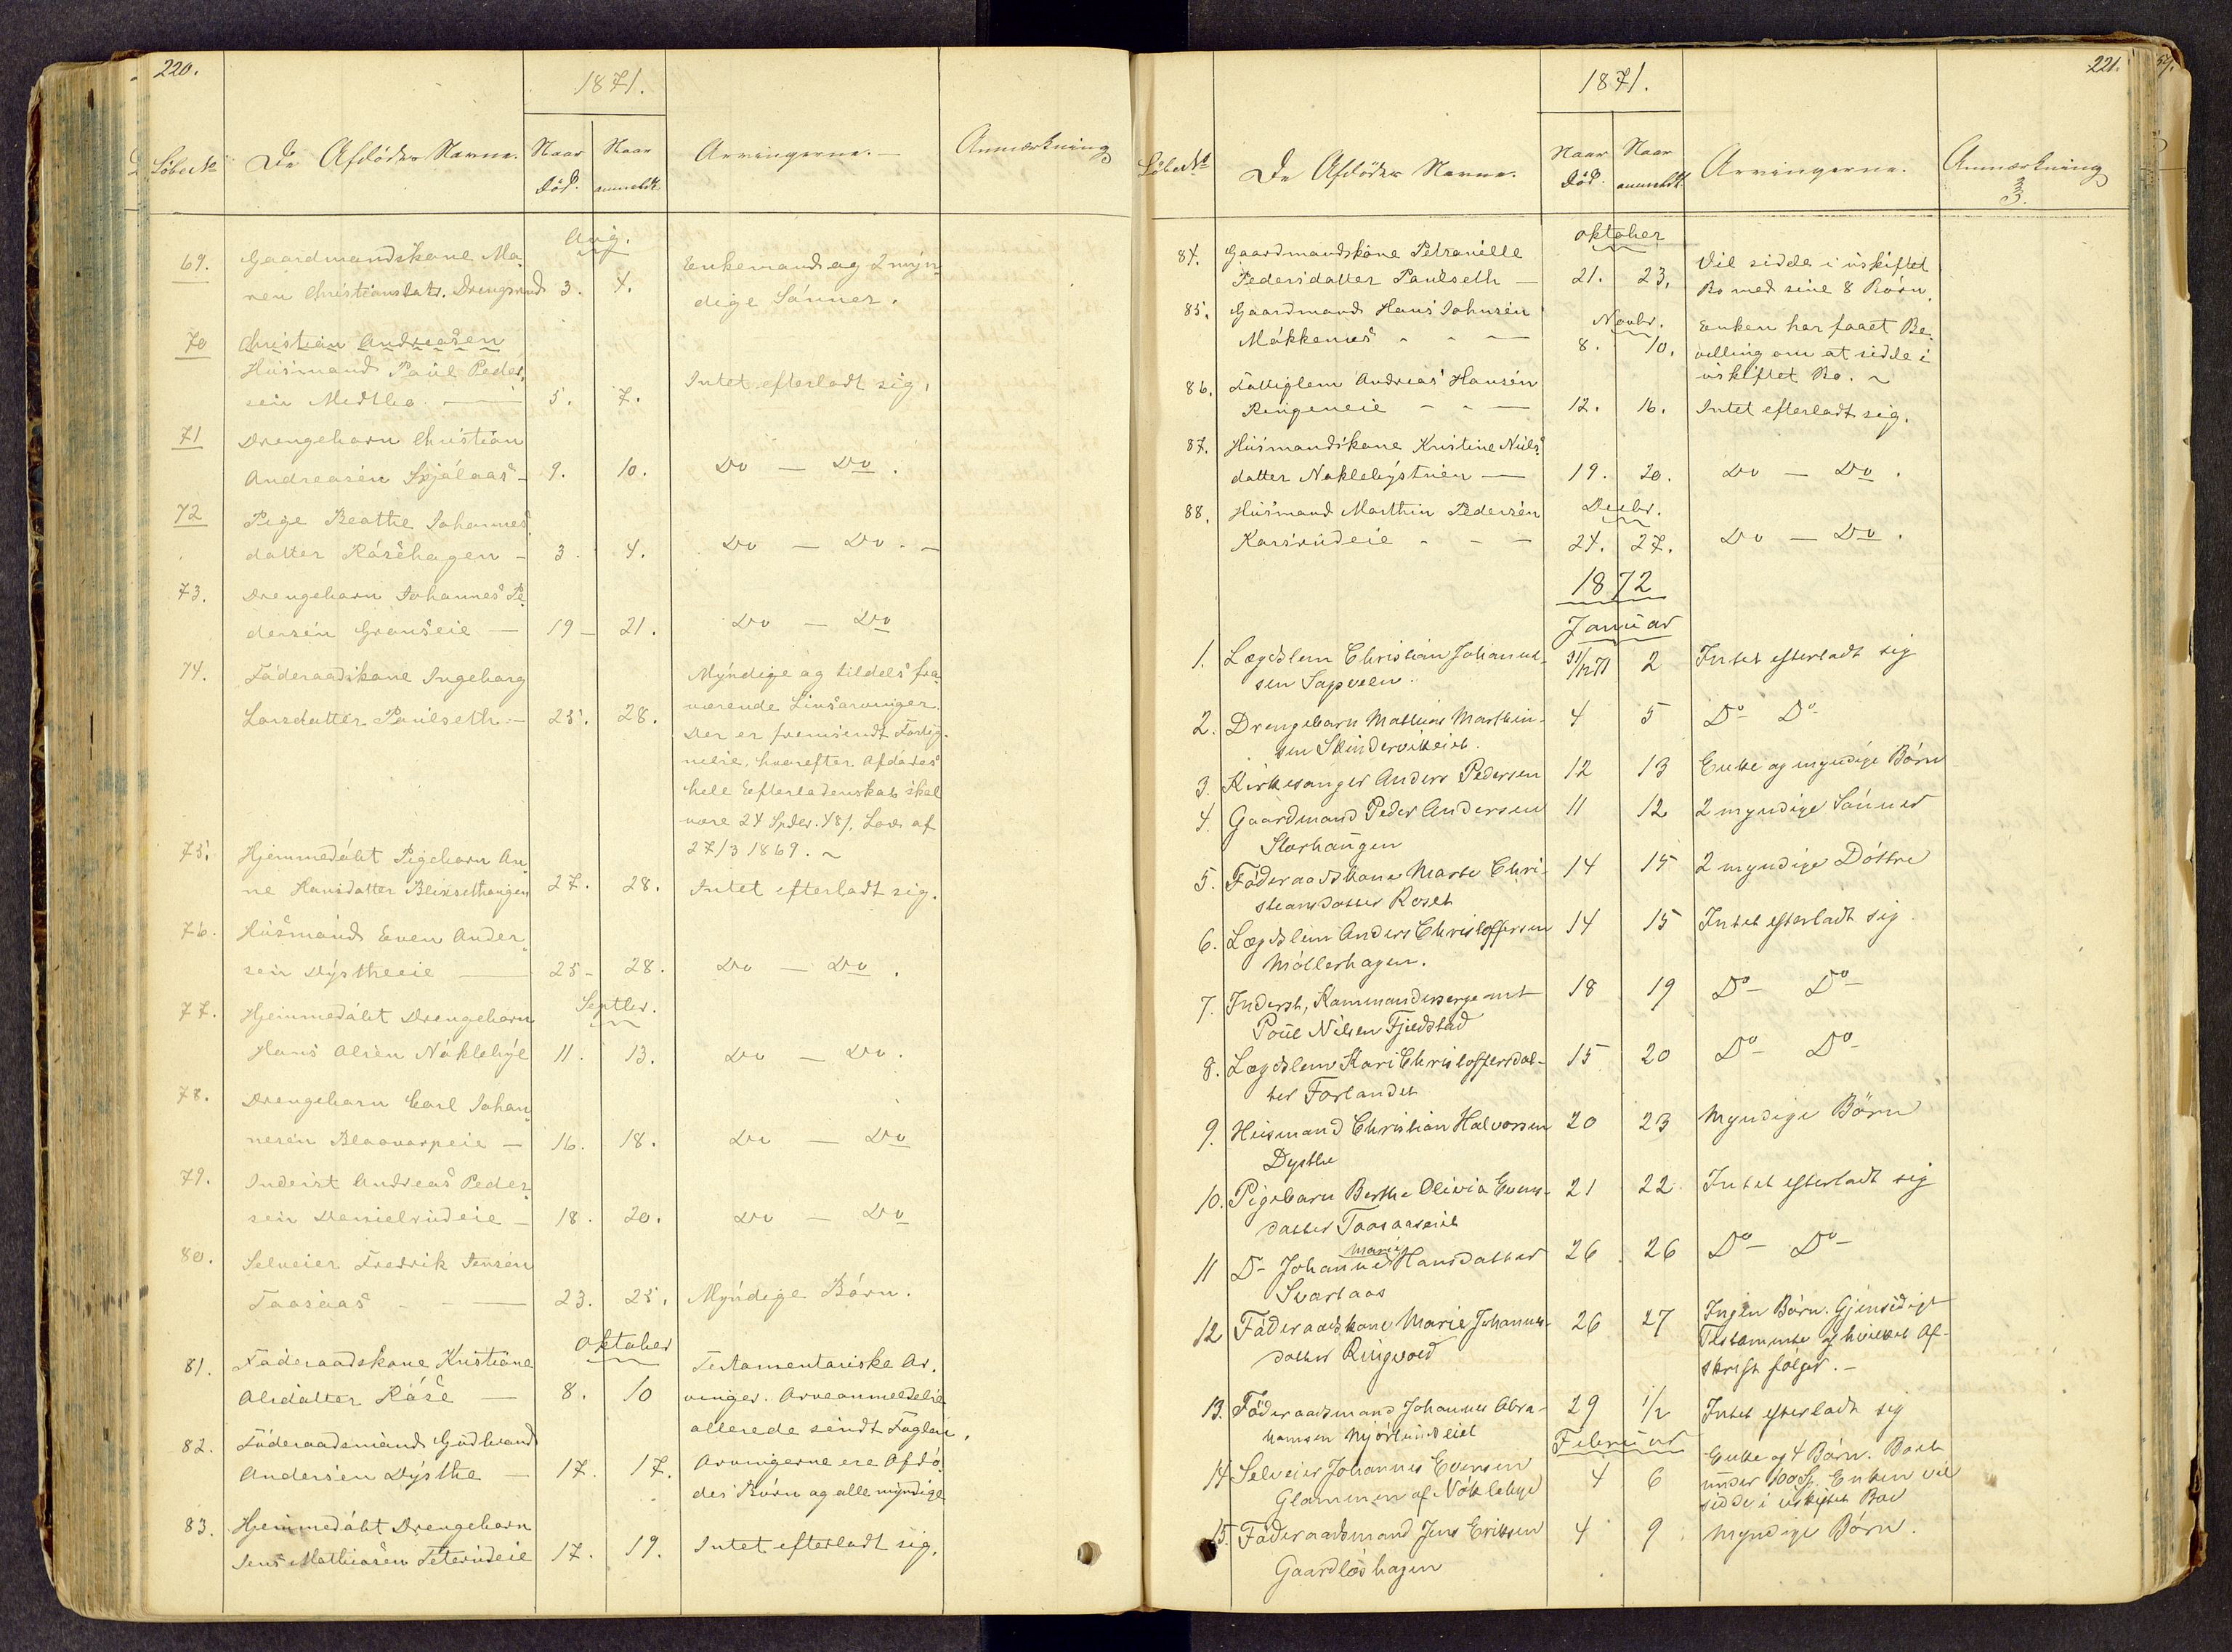 220.
1871.
Løbe No
De Afdødes Navne.
Naar død.
Naar anmeldt.
Arvingerne.
Anmærkning
Aug.
69. Gaardmandskone Ma-
ren Christiansdatr. Drengsrud 3. 4.
Enkemand og 2 myn-
dige Sønner.
70 Christian Andreasen
Huusmand Paul Peder-
sen Midtbø 5. 7.
Intet efterladt sig.
71 Drengebarn Christian
Andreasen Spjølaas 9. 10. Do — Do.
72 Pige Beathe Johannes-
datter Kåsehagen 3. 4. Do — Do.
73. Drengebarn Johannes Pe-
dersen Granseie 19 21. Do — Do
74. Føderaadskone Ingeborg
Larsdatter Paulseth 25. 28.
Myndige og tildels fra-
værende Livsarvinger.
Der er fremsendt Forteg-
nelse, hvorefter Afdødes
hele Efterladenskab skal
være 24 Spdlr. 48 /. Lov af
27/3 1869.
75. Hjemmedøbt Pigebarn An-
ne Hansdatter Blixsethaugen 27. 28. Intet efterladt sig.
76. Huusmand Even Ander-
sen Dystheeie 25 28. Do — Do.
Septbr.
77. Hjemmedøbt Drengebarn
Hans Olsen Nøklebye 11. 13. Do — Do.
78. Drengebarn Carl Johan-
nesen Blaavarpeie 16. 18. Do — Do
79. Inderst Andreas Peder-
sen Danielrudeie 18. 20. Do — Do
80. Selveier Fredrik Jensen
Taasaas 23. 25. Myndige Børn.
Oktober
81. Føderaadskone Kristiane
Olsdatter Kåse 8. 10
Testamentariske Ar-
vinger. Arveanmeldelse
allerede sendt Fogden.
82. Føderaadsmand Gudbrand
Andersen Dysthe 17. 17.
Arvingerne ere Afdø-
des Børn og alle myndige
83. Hjemmedøbt Drengebarn
Jens Mathiasen Teterudeie 17. 19. Intet efterladt sig.
221.
1871.
Løbe No
De Afdødes Navne.
Naar død.
Naar anmeldt
Arvingerne.
Anmærkning
Oktober
84. Gaardmandskone Petronille
Pedersdatter Paulseth 21. 23.
Vil sidde i uskiftet
Bo med sine 8 Børn.
85. Gaardmand Hans Johnsen
Novbr.
Måkkenes 8. 10.
Enken har faaet Be-
villing om at sidde i
uskiftet Bo.
86. Fattiglem Andreas Hansen
Ringeneie 12. 16. Intet efterladt sig.
87. Huusmandskone Kristine Niels-
datter Noklebystuen 19. 20. Do — Do.
88. Husmand Marthin Pedersen
Decbr.
Karsrudeie 24. 27. Do — Do.
1872
Januar
1. Lægdslem Christian Johannes-
sen Sapveen. 31/12 71 2 Intet efterladt sig
2. Drengebarn Mathias Marthin-
sen Skindervikeiet. 4 5 Do Do
3. Kirkesanger Anders Pedersen 12 13 Enke og myndige Børn
4. Gaardmand Peder Andersen
Storhaugen 11 12 2 myndige Sønner
5. Føderaadskone Marte Chri-
stiansdatter Roset 14 15 2 myndige Døttre
6. Lægdslem Anders Christoffersen
Møllerhagen. 14 15 Intet efterladt sig
7. Inderst, Kommandersergeant
Poul Nilsen Fjeldstad 18 19 Do Do
8. Lægdslem Kari Christoffersdat-
ter Forlandet 15 20 Do Do
9. Huusmand Christian Halvorsen
Dysthe 20 23 Myndige Børn
10. Pigebarn Berthe Olivia Evens-
datter Taasaaseiet 21 22 Intet efterladt sig
Marie
11 Do Johanne Hansdatter
Svartaas 26 26 Do Do
12 Føderaadskone Marie Johannes-
datter Ringvold 26 27
Ingen Børn. Gjensidigt
Testamente af hvilket Af-
skrift følger.
13. Føderaadsmand Johannes Abra-
hamsen Mjørlundeiet 29 1/2 Intet efterladt sig
Februar
14 Selveier Johannes Evensen
Glammen af Nøklebye 4 6
Enke og 4 Børn. Boet
under 100 Spd. Enken vil
sidde i uskiftet Bo
15. Føderaadsmand Jens Eriksen
Gaardløshagen 4 9 Myndige Børn.